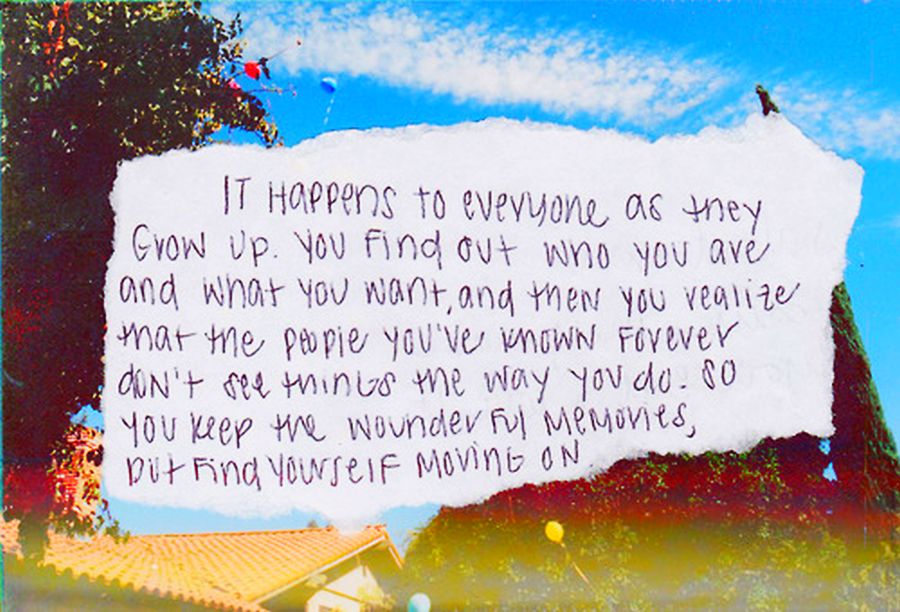 IT Happens to everyone as they
Grow up. You Find out who you are
and what you want, and then you realize
that the people you've known forever
don't see things the way you do. So
you keep the wounderful memories,
but find yourself moving on